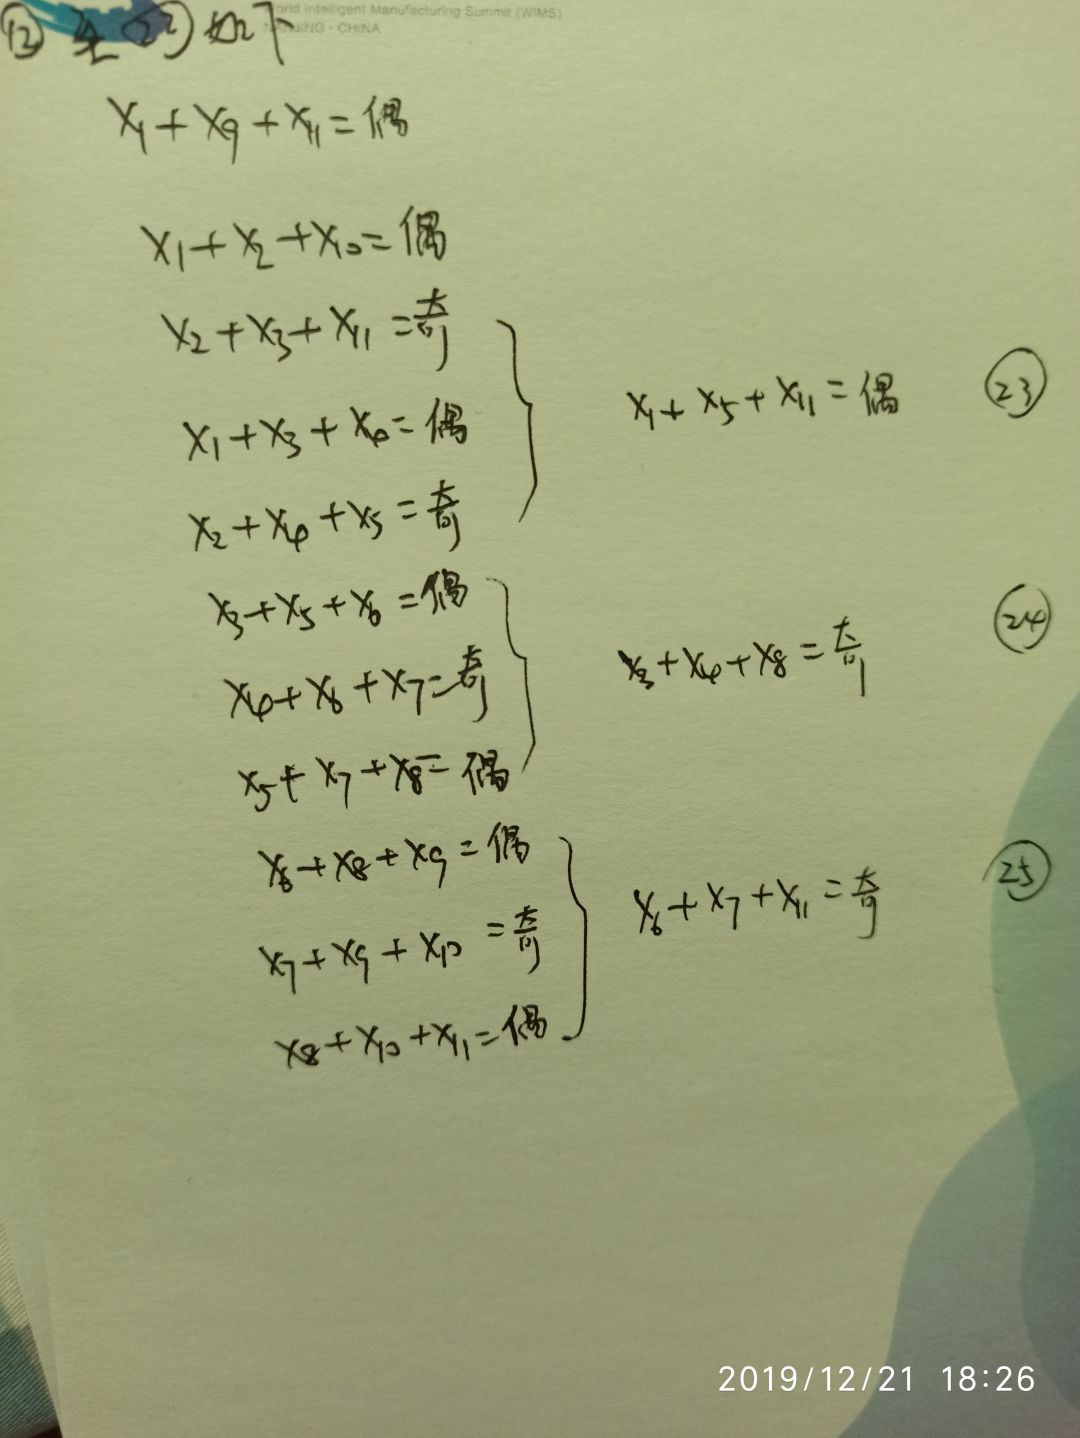 World Intelligent Manufacturing Summit (WIMS)
NANJING · CHINA
如下
x₁+x₉+x₁₁=偶
x₁+x₂+x₁₀=偶
x₂+x₃+x₁₁=奇
x₁+x₃+x₄=偶
x₂+x₄+x₅=奇
x₁+x₅+x₁₁=偶 ㉓
x₃+x₅+x₆=偶
x₄+x₆+x₇=奇
x₅+x₇+x₈=偶
x₃+x₄+x₈=奇 ㉔
x₆+x₈+x₉=偶
x₇+x₉+x₁₀=奇
x₈+x₁₀+x₁₁=偶
x₆+x₇+x₁₁=奇 ㉕
2019/12/21 18:26